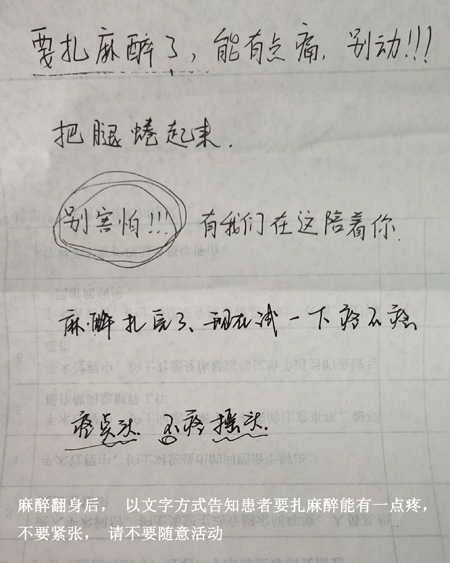 要扎麻醉了，能有点痛，别动!!!
把腿蜷起来.
别害怕!!! 有我们在这陪着你.
麻醉扎完了、现在试一下疼不疼
疼点头 不疼摇头.
麻醉翻身后， 以文字方式告知患者要扎麻醉能有一点疼，
不要紧张， 请不要随意活动